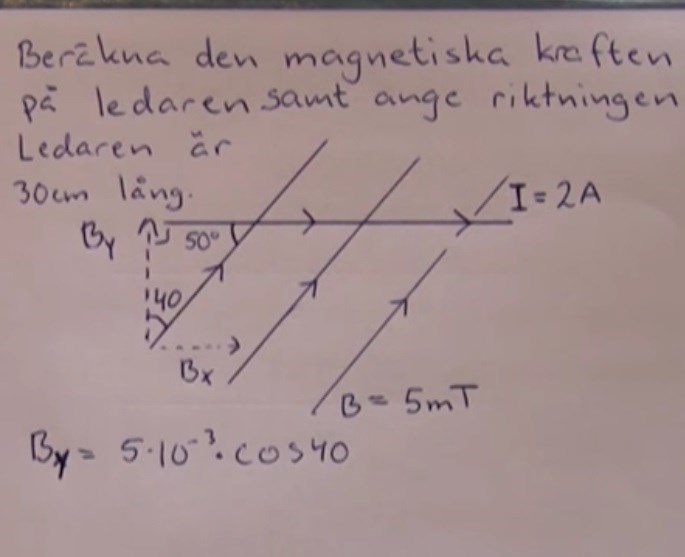 Beräkna den magnetiska kraften
på ledaren samt ange riktningen
Ledaren är
30cm lång.
I = 2A
By
50°
40
Bx
B = 5mT
By = 5·10⁻³·cos40